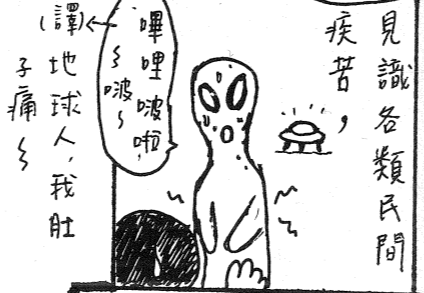 見識各類民間
疾苦，
嗶哩啵啦，
ㄋ啵ㄋ
(譯)地球人，我肚
子痛ㄋ